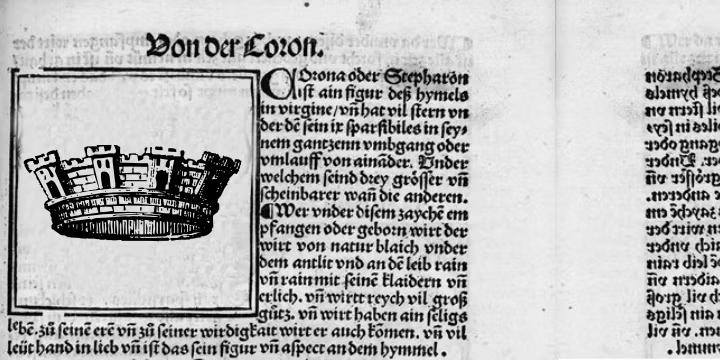 Von der Coron.
COrona oder Stepharon
ist ain figur deß hymels
in virgine/ vn̄ hat vil stern vn
der dē sein ix sparsibiles in sey⸗
nem gantzenn vmbgang oder
vmlauff von aināder. Vnder
welchem seind drey grösser vn̄
scheinbarer wan̄ die anderen.
¶Wer vnder disem zaychē em
pfangen oder geborn wirt der
wirt von natur blaich vnder
dem antlit vnd an dē leib rain
vn̄ rain mit seinē klaidern vn̄
erlich. vn̄ wirtt reych vil groß
gūtz. vn̄ wirt haben ain seligs
lebē. zū seinē erē vn̄ zū seiner wirdigkait wirt er auch kōmen. vn̄ vil
leüt hand in lieb vn̄ ist das sein figur vn̄ aspect an dem hymmel.